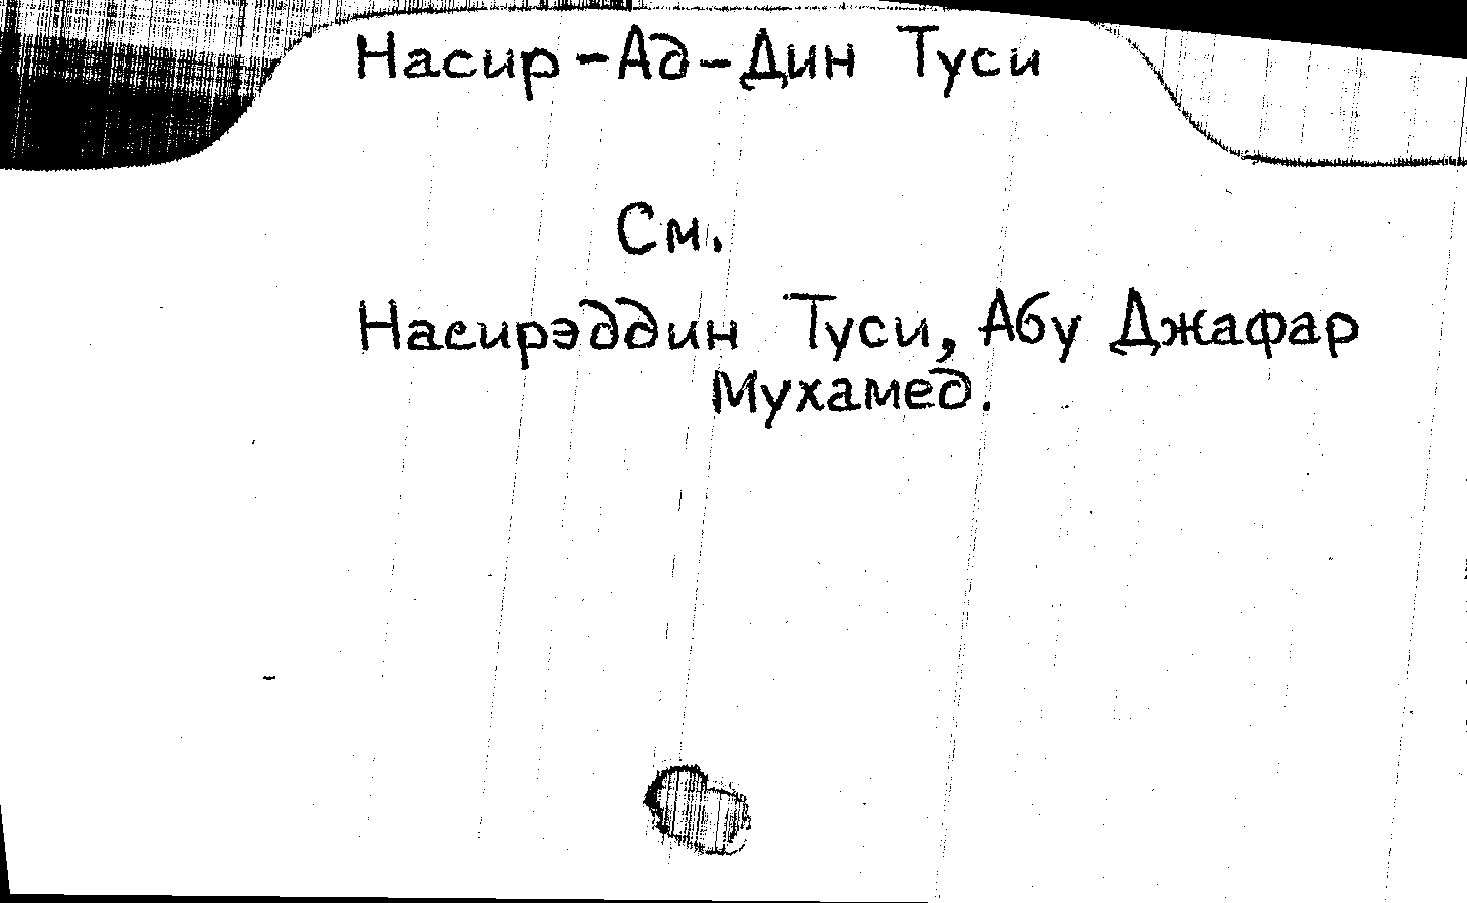 Насир-Ад-Дин Туси
См.
Насирэддин Туси, Абу Джафар
Мухамед.